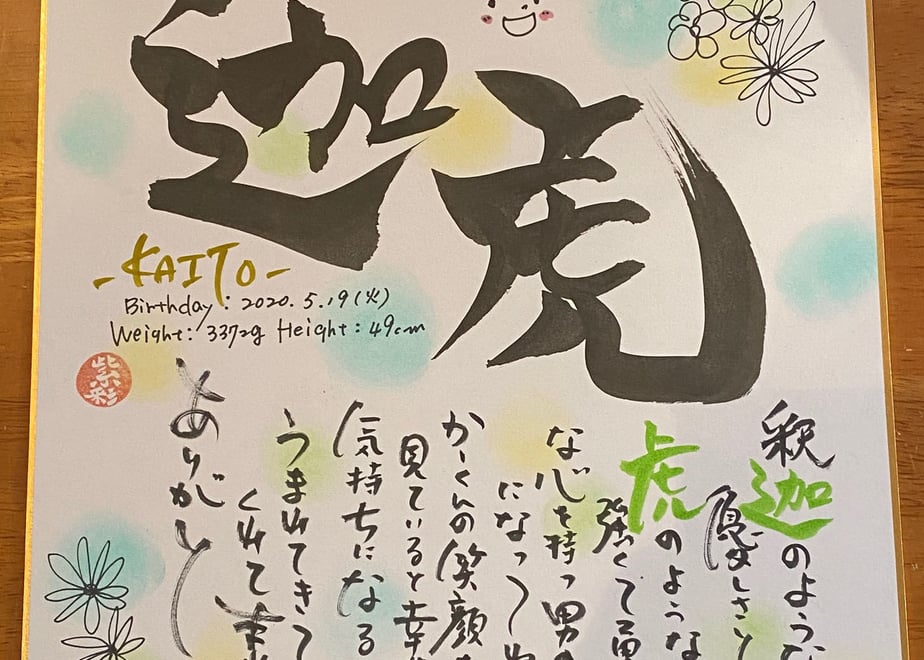 迦虎
-KAITO-
Birthday: 2020.5.19(火)
Weight: 3372g Height: 49cm
紫彩
釈迦のような
優しさと
虎のような
強くて勇
な心を持つ男の
になって
かーくんの笑顔を
見ていると幸
気持ちになる
うまれてきて
くれて本
ありがと